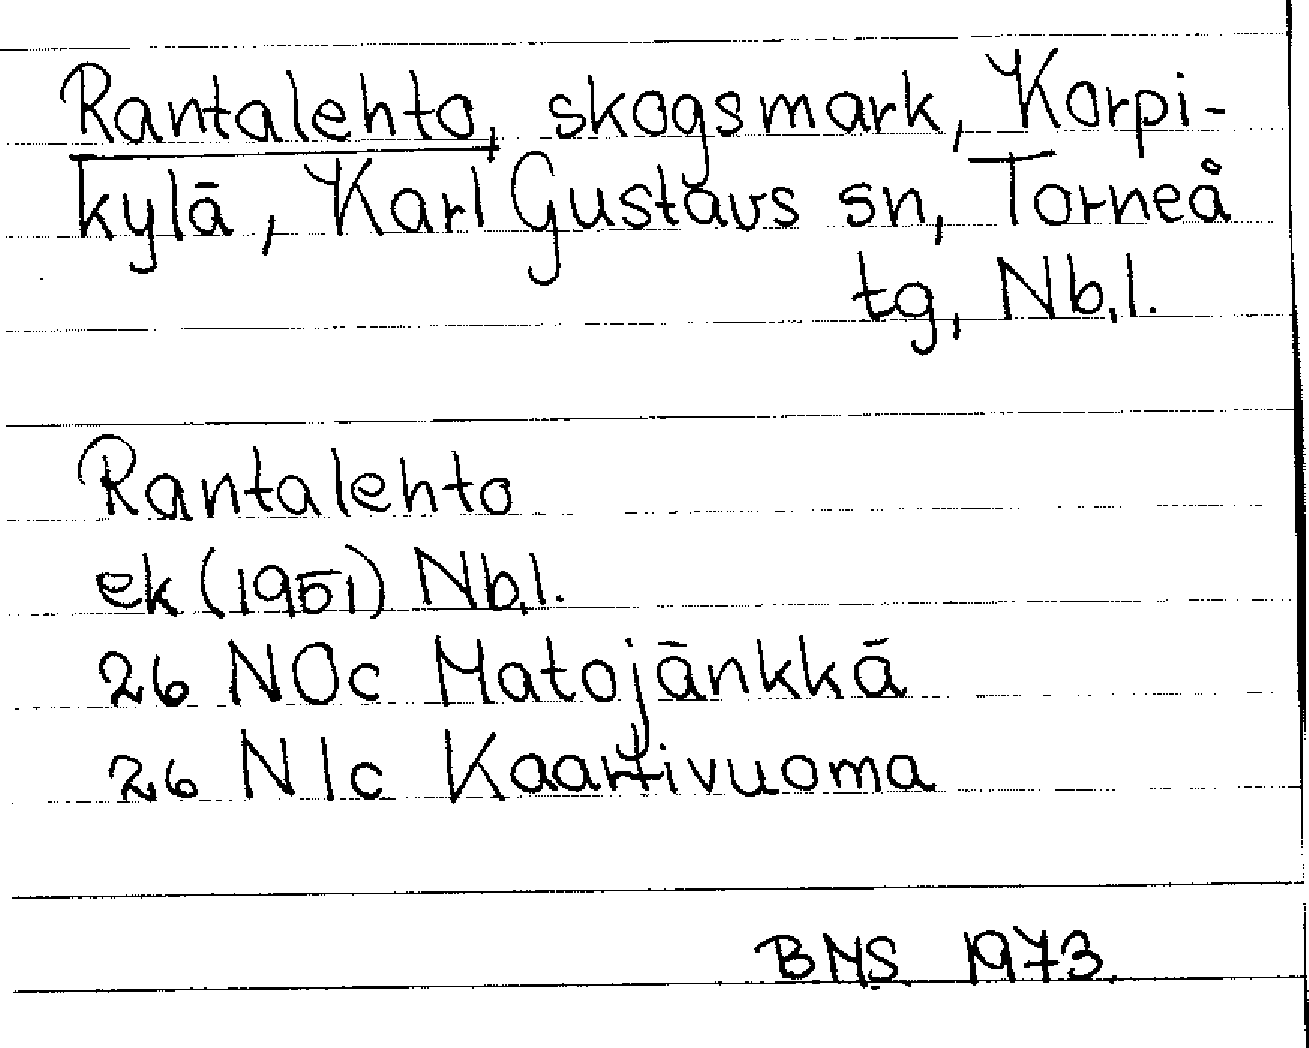 Rantalehto, skogsmark, Korpi-
kylä, Karl Gustavs sn, Torneå
tg, Nb.l.
Rantalehto
ek (1951) Nb.l.
26 NOc Matojänkkä
26 N1c Kaartivuoma
BMS 1973.